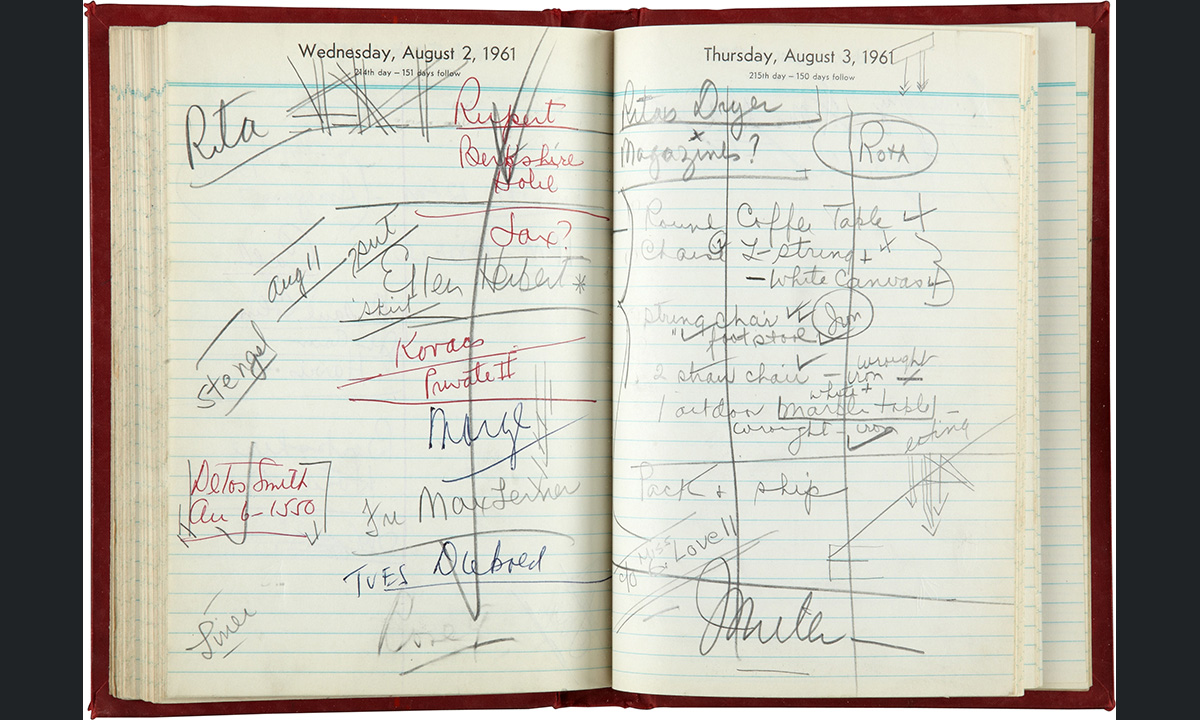 Wednesday, August 2, 1961
214th day — 151 days follow
Rita
Rupert
Berkshire
Hotel
Aug 11
Jax?
Ellen Herbert *
skirt
Stengel
Kovacs
Private II
Marge
Delos Smith
Au 6-1550
Max Lerner
TUES Diebold
Thursday, August 3, 1961
215th day — 150 days follow
Ritas Dryer
Magazines?
Roth
Round Coffee Table
Chairs 2-string +
— White Canvas
string chair
Jim
" footstool
2 straw chair — wrought
iron
white +
1 outdoor marble table —
wrought-iron
eating
Pack & ship
c/o Miss Lovell